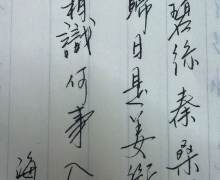 碧絲秦桑
歸日是妾
相識何事入
海